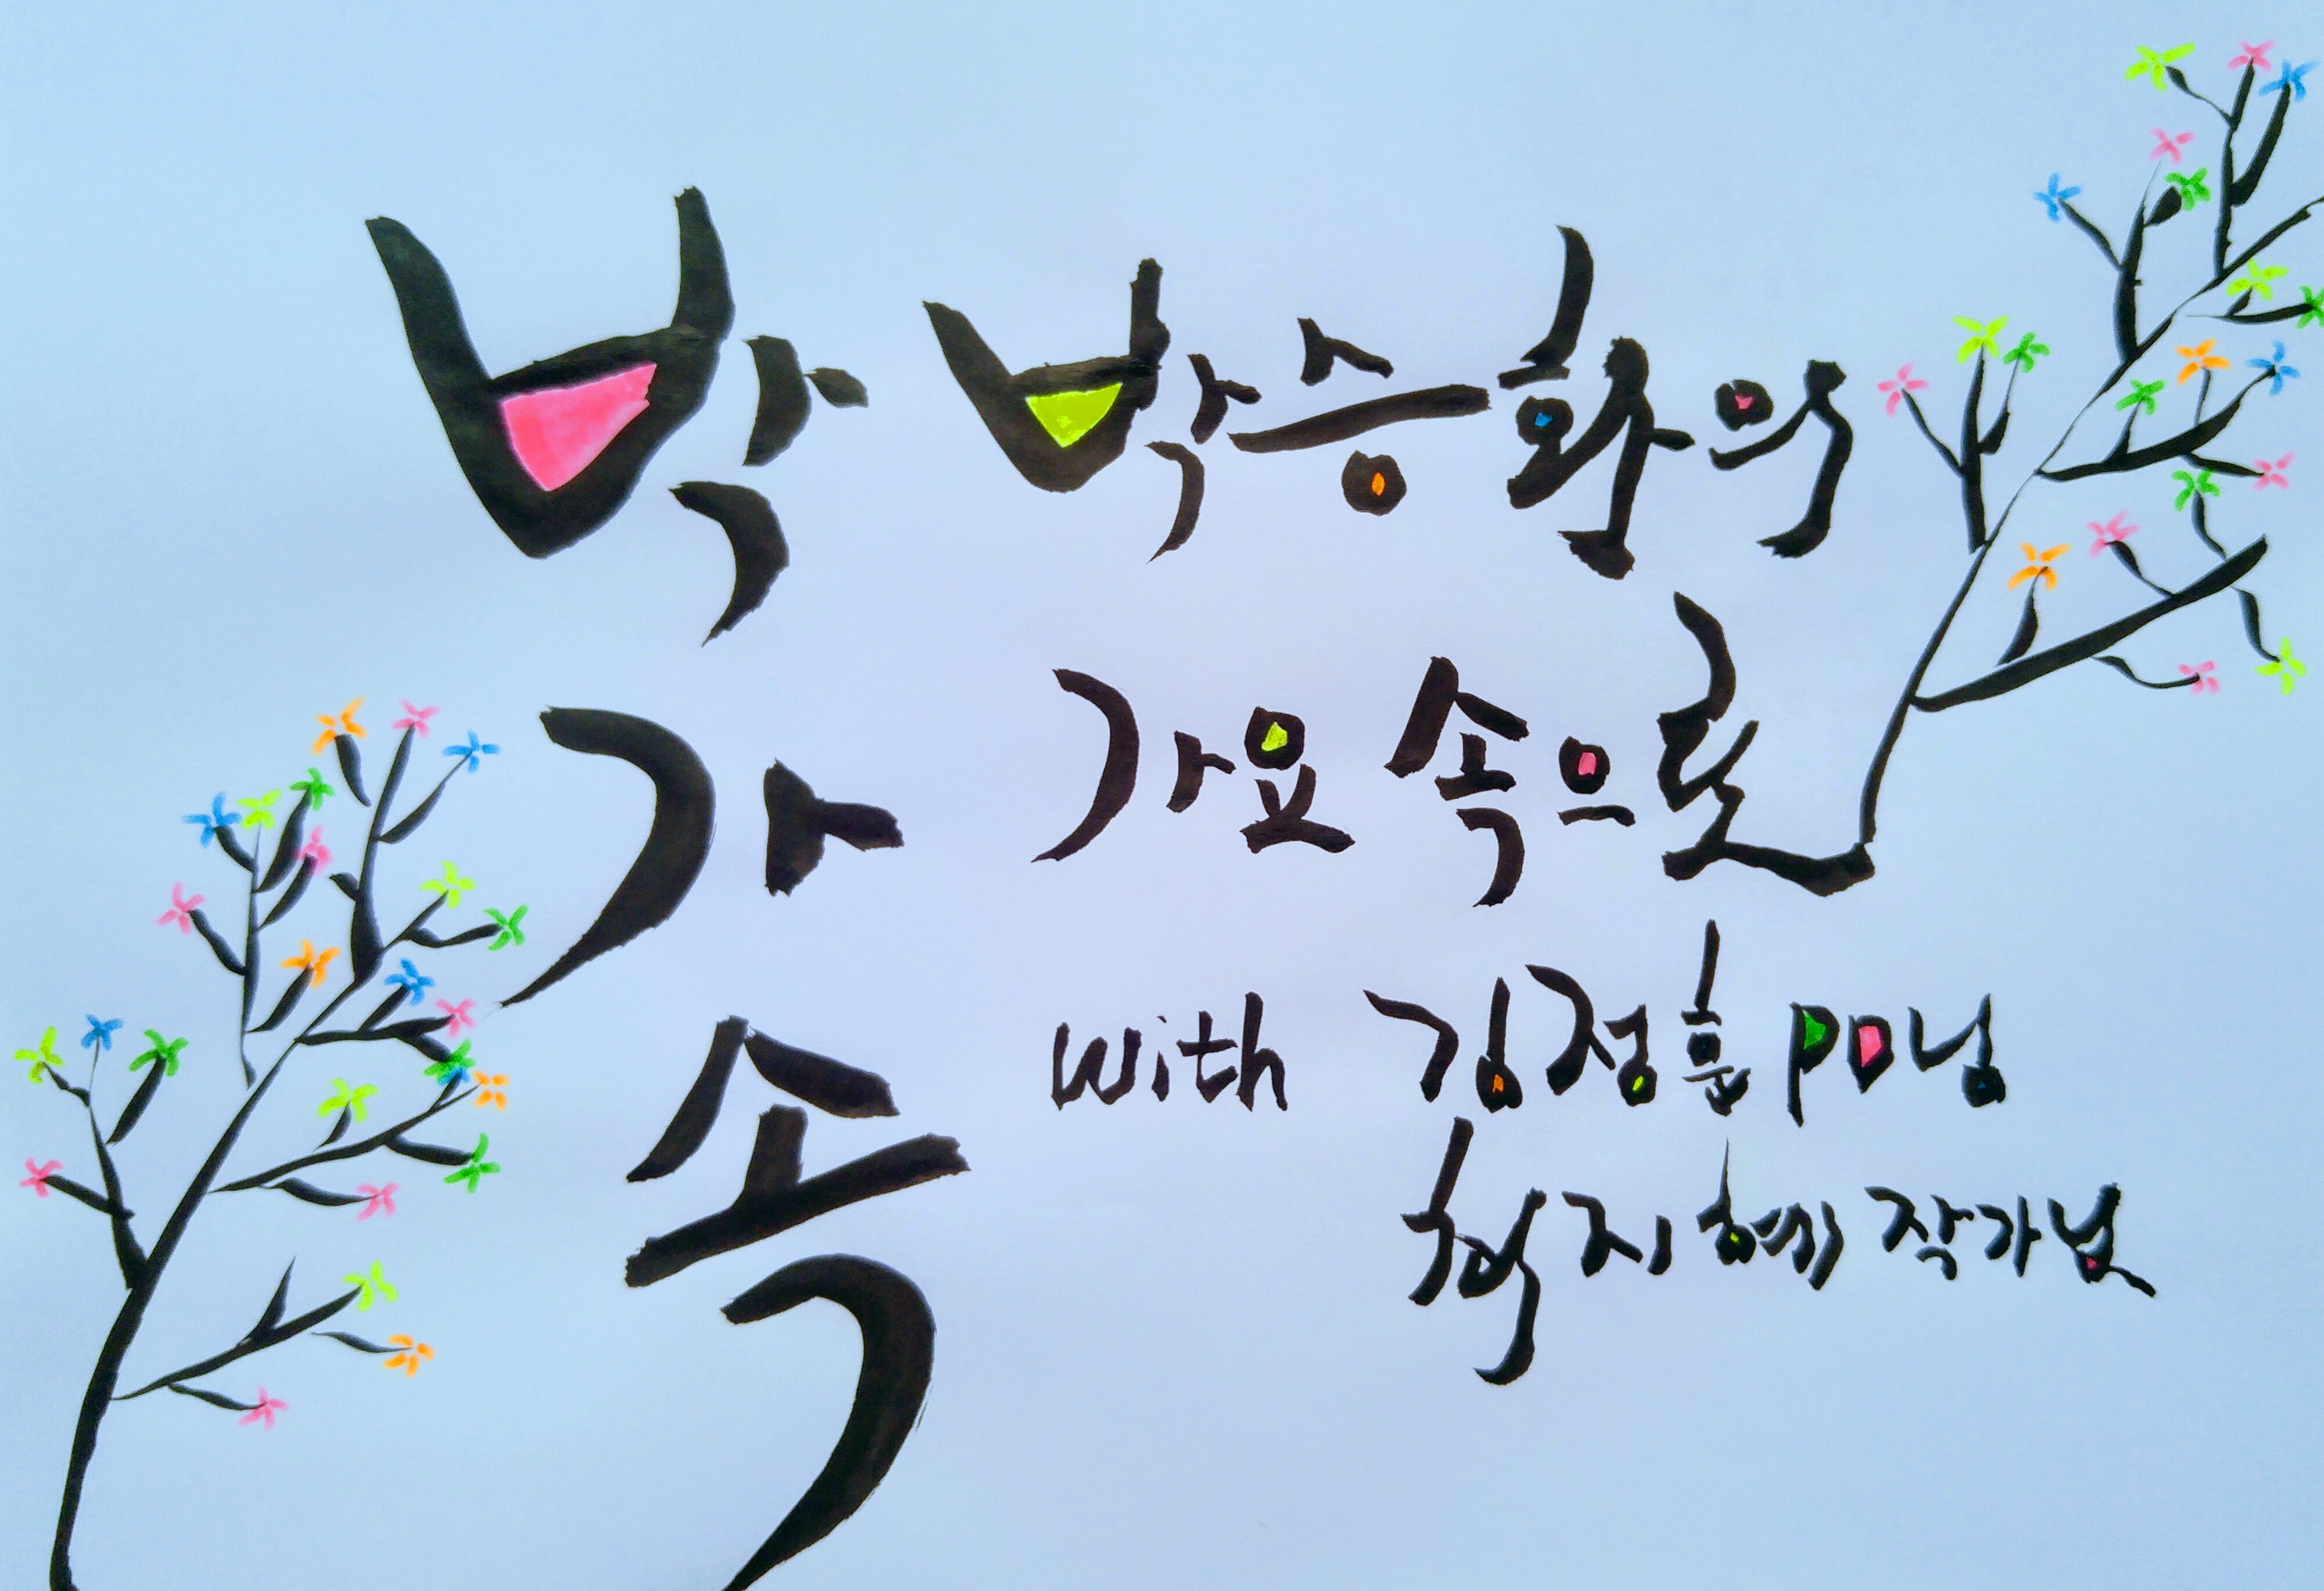 박
가
속
박승화의
가요 속으로
with 김정훈 PD님
지혜 작가님